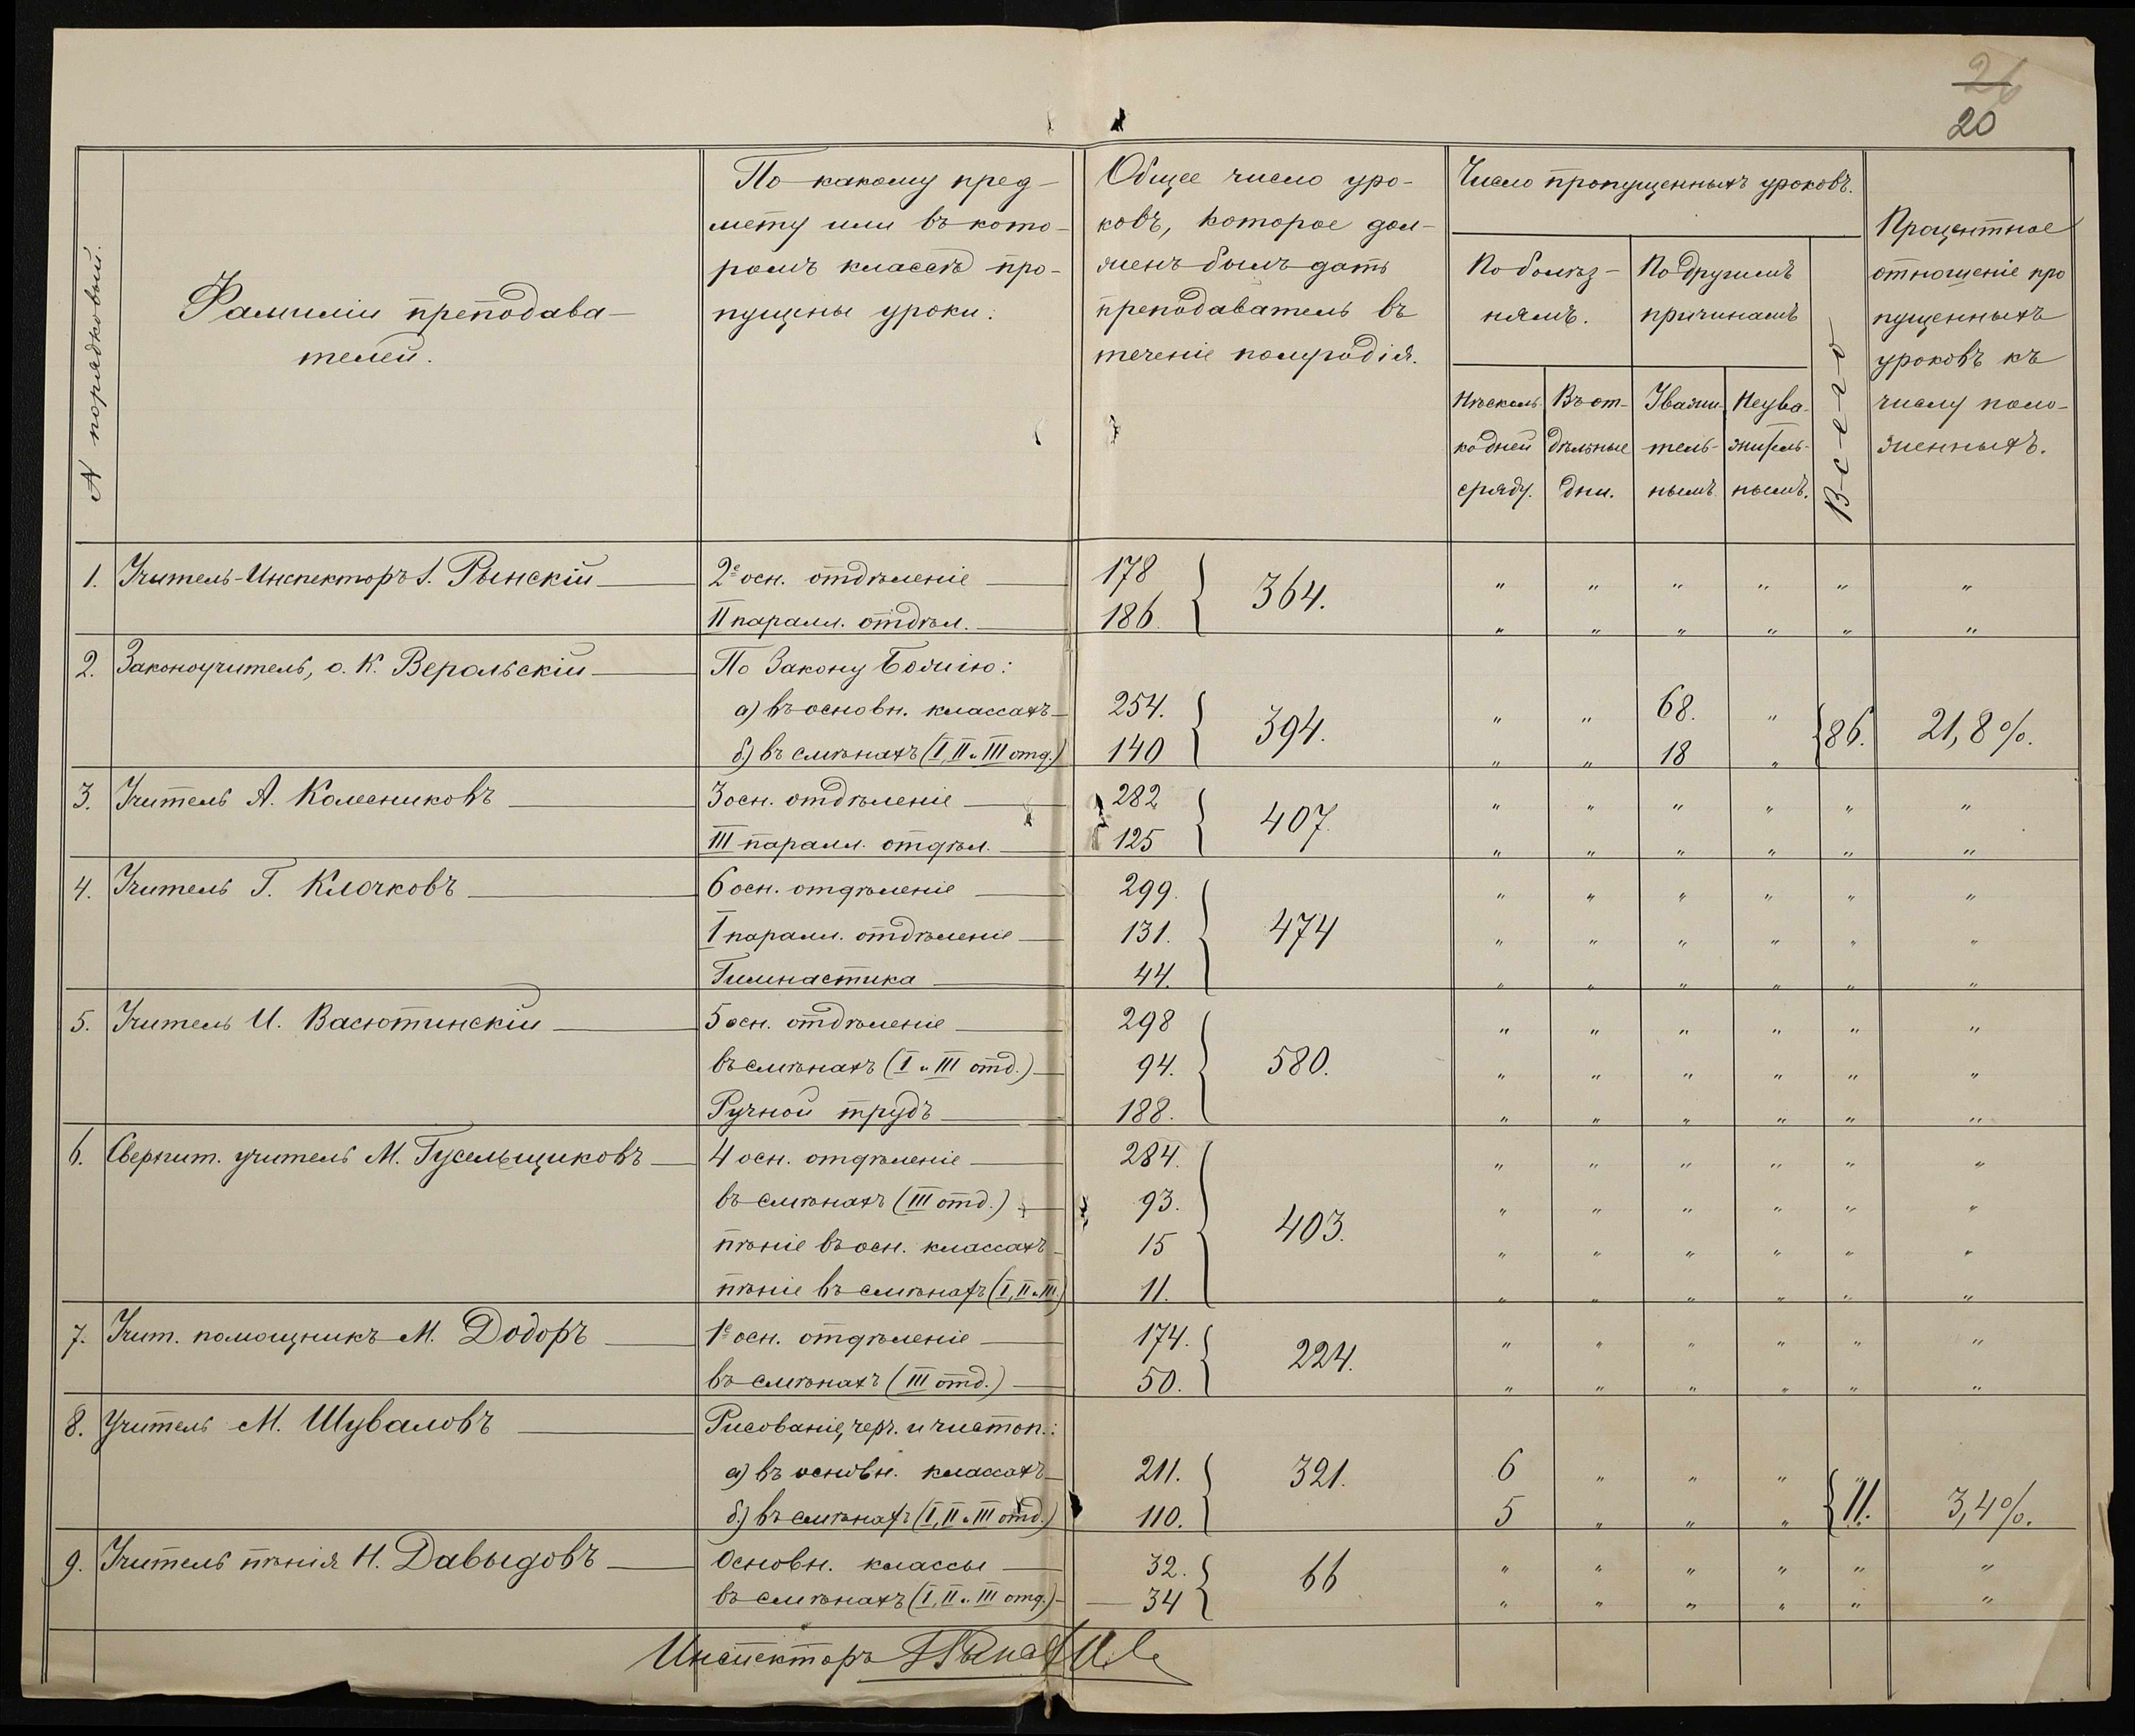 26
20
N порядковый.
Фамиліи преподава-
телей.
По какому пред-
мету или въ кото-
ромъ классѣ про-
пущены уроки.
Общее число уро-
ковъ, которое дол-
женъ былъ дать
преподаватель въ
теченіе полугодія.
Число пропущенныхъ уроковъ.
По болѣз-
нямъ.
По другимъ
причинамъ
Нѣсколь-
ко дней
сряду.
Въ от-
дѣльные
дни.
Уважи-
тель-
нымъ
Неува-
житель-
нымъ.
Всего
Процентное
отношеніе про
пущенныхъ
уроковъ къ
числу поло-
женныхъ.
1. Учитель-Инспекторъ І. Рынскій 2е осн. отдѣленіе 178 364. " " " " " "
II паралл. отдѣл. 186. " " " " " "
2. Законоучитель, о. К. Верольскій По Закону Божію:
а) въ основн. классахъ 254. 394. " " 68. " 86. 21,8%.
б) въ смѣнахъ (I, II и III отд.) 140 " " 18 "
3. Учитель А. Колесниковъ 3 осн. отдѣленіе 282 407. " " " " " "
III паралл. отдѣл. 125 " " " " " "
4. Учитель Г. Клочковъ 6 осн. отдѣленіе 299. " " " " " "
I паралл. отдѣленіе 131. 474 " " " " " "
Гимнастика 44. " " " " " "
5. Учитель И. Васютинскій 5 осн. отдѣленіе 298 " " " " " "
въ смѣнахъ (I и III отд.) 94. 580. " " " " " "
Ручной трудъ 188. " " " " " "
6. Сверхшт. учитель М. Гусельщиковъ 4 осн. отдѣленіе 284. " " " " " "
въ смѣнахъ (III отд.) 93. " " " " " "
пѣніе въ осн. классахъ 15 403. " " " " " "
пѣніе въ смѣнахъ (I, II и III) 11. " " " " " "
7. Учит. помощникъ М. Додоръ 1е осн. отдѣленіе 174. 224. " " " " " "
въ смѣнахъ (III отд.) 50. " " " " " "
8. Учитель М. Шуваловъ Рисованіе, черч. и чистоп.:
а) въ основн. классахъ 211. 321. 6 " " " "
б) въ смѣнахъ (I, II и III отд.) 110. 5 " " " 11. 3,4%.
9. Учитель пѣнія Н. Давыдовъ Основн. классы 32. 66 " " " " " "
въ смѣнахъ (I, II и III отд.) 34 " " " " " "
Инспекторъ